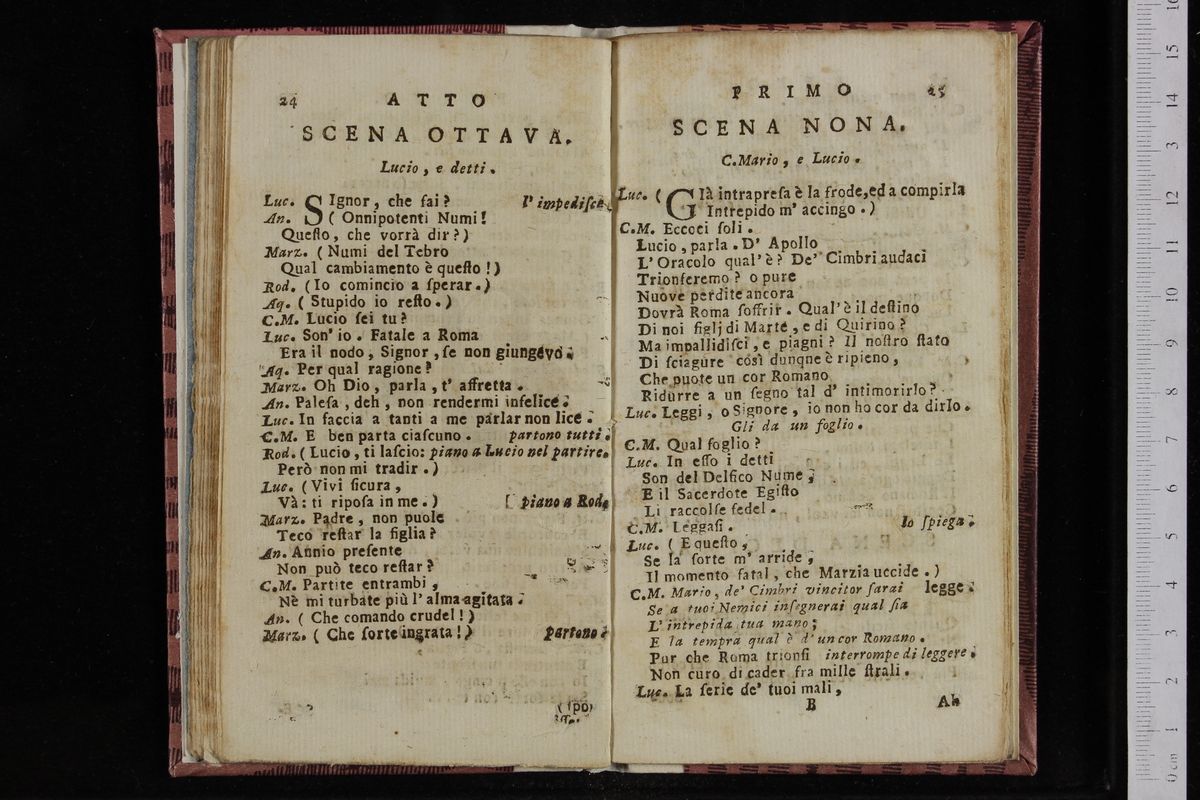 24 ATTO
SCENA OTTAVA.
Lucio, e detti.
Luc. SIgnor, che fai? l'impediſce.
An. (Onnipotenti Numi!
Queſto, che vorrà dir?)
Marz. (Numi del Tebro
Qual cambiamento è queſto!)
Rod. (Io comincio a ſperar.)
Aq. (Stupido io reſto.)
C.M. Lucio ſei tu?
Luc. Son' io. Fatale a Roma
Era il nodo, Signor, ſe non giungevo.
Aq. Per qual ragione?
Marz. Oh Dio, parla, t' affretta.
An. Paleſa, deh, non rendermi infelice.
Luc. In faccia a tanti a me parlar non lice.
C.M. E ben parta ciaſcuno. partono tutti.
Rod. (Lucio, ti laſcio: piano a Lucio nel partire.
Però non mi tradir.)
Luc. (Vivi ſicura,
Và: ti ripoſa in me.) [piano a Rod.
Marz. Padre, non puole
Teco reſtar la figlia?
An. Annio preſente
Non può teco reſtar?
C.M. Partite entrambi,
Nè mi turbate più l' alma agitata.
An. (Che comando crudel!)
Marz. (Che ſorte ingrata!) partono.
PRIMO 25
SCENA NONA.
C.Mario, e Lucio.
Luc. (GIà intrapreſa è la frode, ed a compirla
Intrepido m' accingo.)
C.M. Eccoci ſoli.
Lucio, parla. D' Apollo
L' Oracolo qual' è? De' Cimbri audaci
Trionferemo? o pure
Nuove perdite ancora
Dovrà Roma ſoffrir. Qual' è il deſtino
Di noi figlj di Marte, e di Quirino?
Ma impallidiſci, e piagni? Il noſtro ſtato
Di ſciagure così dunqne è ripieno,
Che puote un cor Romano
Ridurre a un ſegno tal d' intimorirlo?
Luc. Leggi, o Signore, io non ho cor da dirlo.
Gli da un foglio.
C.M. Qual foglio?
Luc. In eſſo i detti
Son del Delfico Nume;
E il Sacerdote Egiſto
Li raccolſe fedel.
C.M. Leggaſi. lo ſpiega.
Luc. (E queſto,
Se la ſorte m' arride,
Il momento fatal, che Marzia uccide.)
C.M. Mario, de' Cimbri vincitor ſarai legge.
Se a tuoi Nemici inſegnerai qual ſia
L' intrepida tua mano;
E la tempra qual è d' un cor Romano.
Pur che Roma trionfi interrompe di leggere.
Non curo di cader fra mille ſtrali.
Luc. La ſerie de' tuoi mali,
B Ah